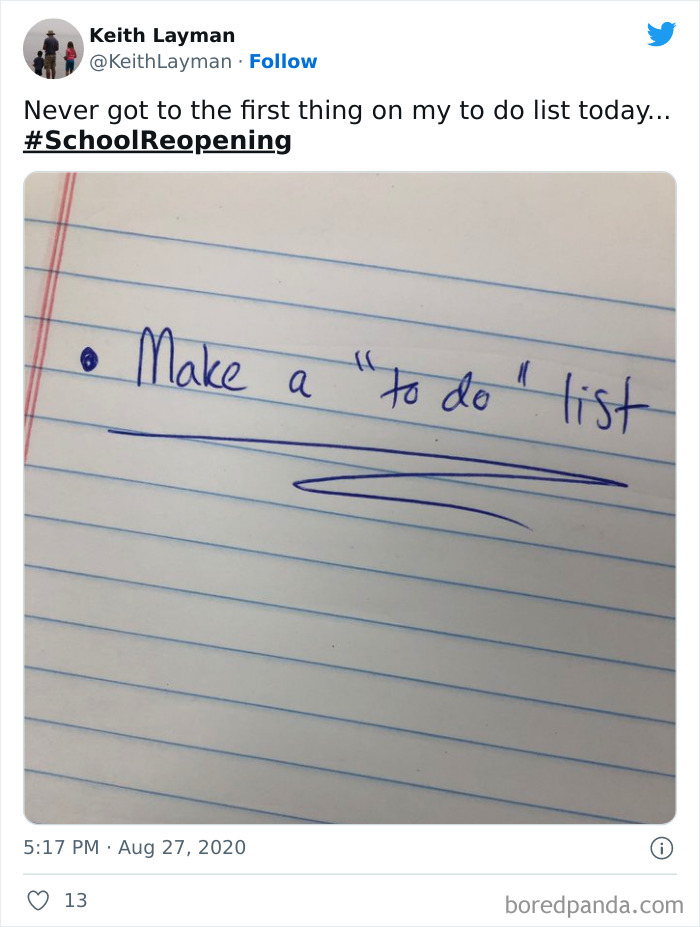 Keith Layman
@KeithLayman · Follow
Never got to the first thing on my to do list today...
#SchoolReopening
• Make a "to do" list
5:17 PM · Aug 27, 2020
13
boredpanda.com